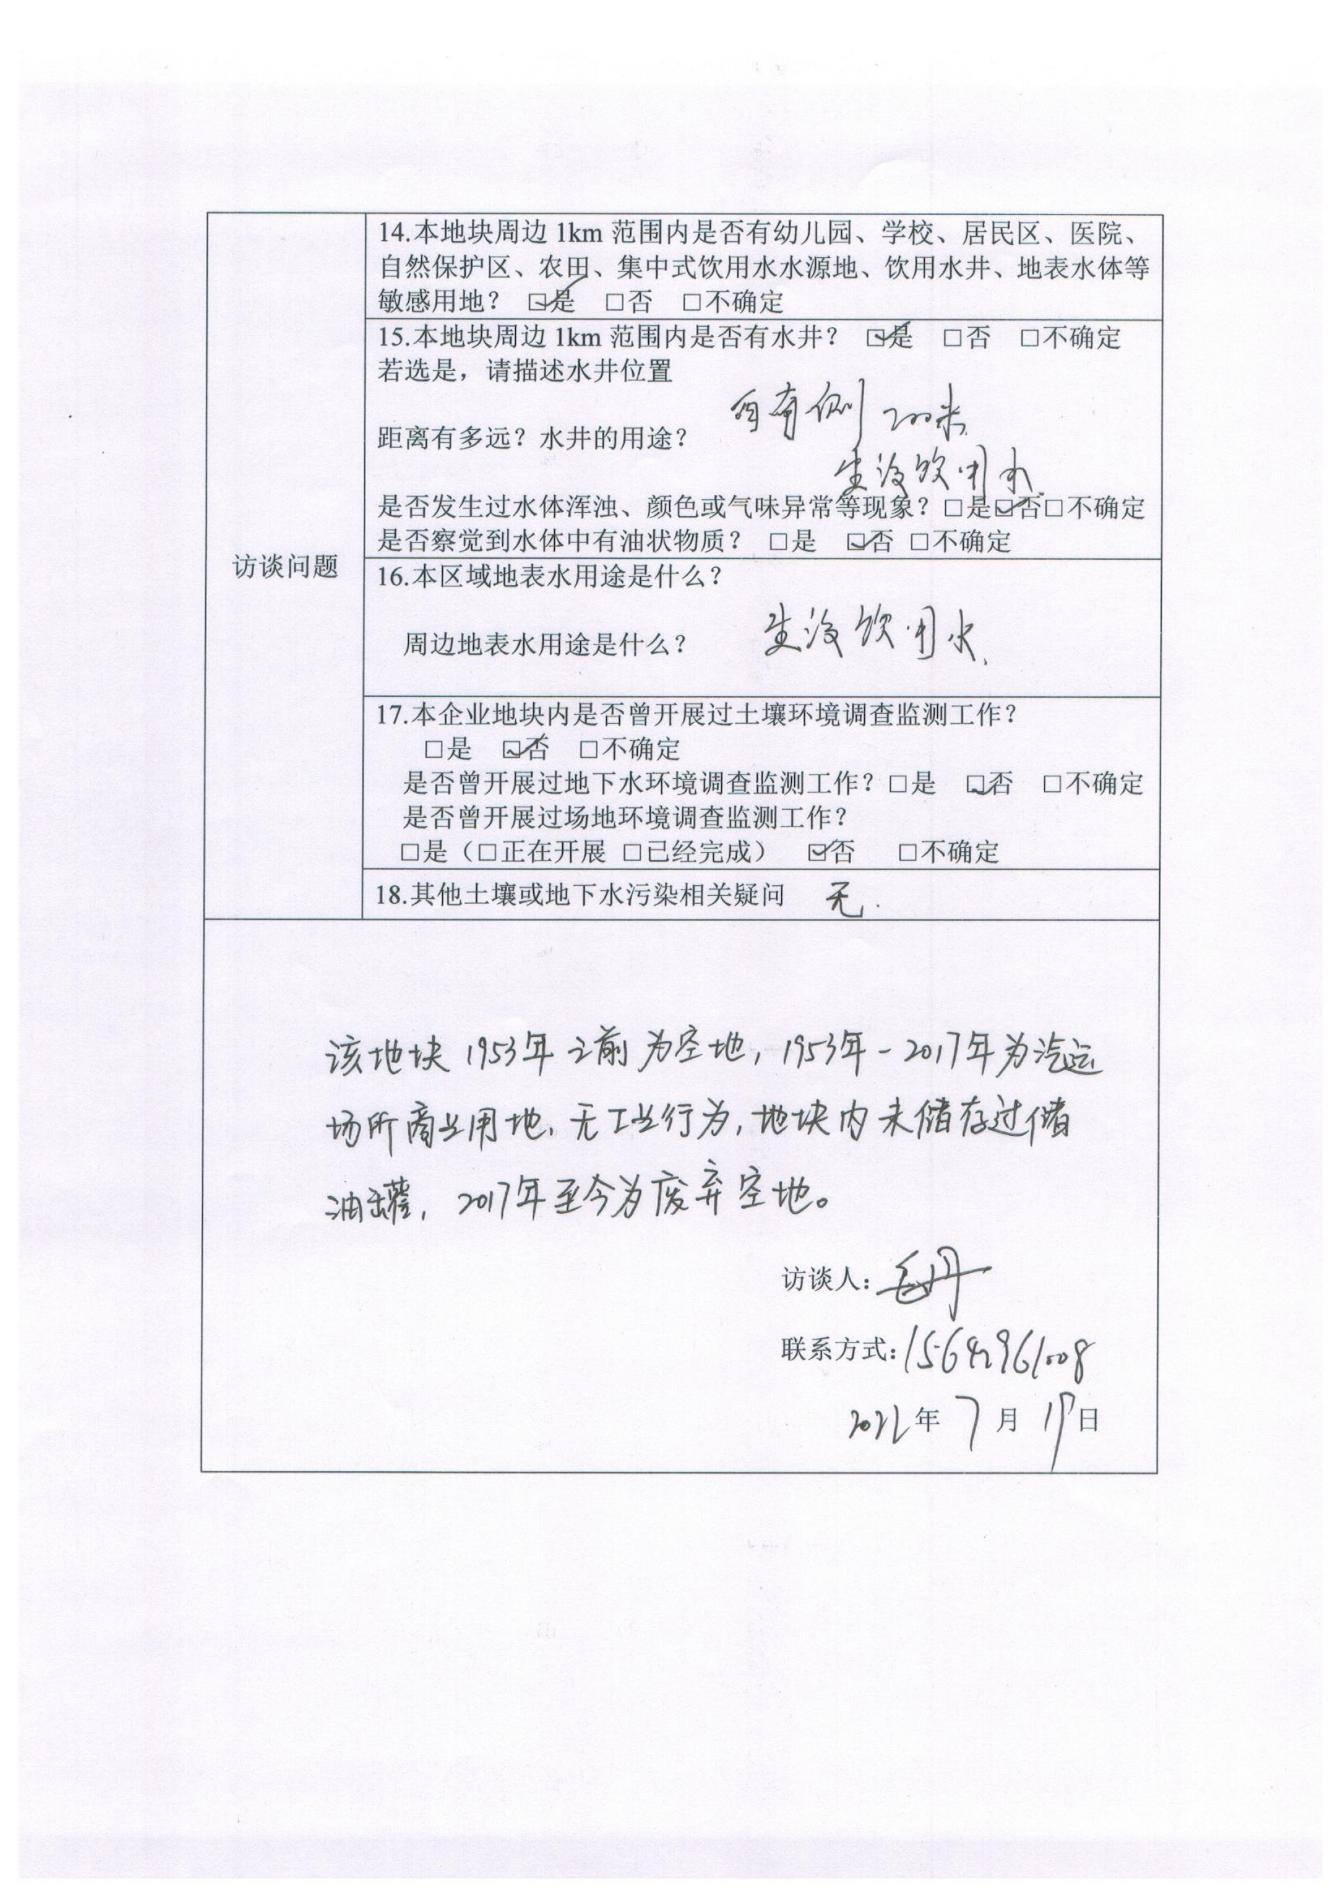 14.本地块周边 1km 范围内是否有幼儿园、学校、居民区、医院、
自然保护区、农田、集中式饮用水水源地、饮用水井、地表水体等
敏感用地? ☑是 □否 □不确定
15.本地块周边 1km 范围内是否有水井? ☑是 □否 □不确定
若选是,请描述水井位置
侧 200米
距离有多远?水井的用途?
生活饮用水
是否发生过水体浑浊、颜色或气味异常等现象?□是☑否□不确定
是否察觉到水体中有油状物质? □是 ☑否 □不确定
访谈问题
16.本区域地表水用途是什么?
周边地表水用途是什么? 生活饮用水
17.本企业地块内是否曾开展过土壤环境调查监测工作?
□是 ☑否 □不确定
是否曾开展过地下水环境调查监测工作?□是 ☑否 □不确定
是否曾开展过场地环境调查监测工作?
□是(□正在开展 □已经完成) ☑否 □不确定
18.其他土壤或地下水污染相关疑问 无.
该地块1953年之前为空地,1953年-2017年为汽运
场所商业用地,无工业行为,地块内未储存过储
油罐,2017年至今为废弃空地。
访谈人:毛丹
联系方式:15642961008
2022年 7月 19日